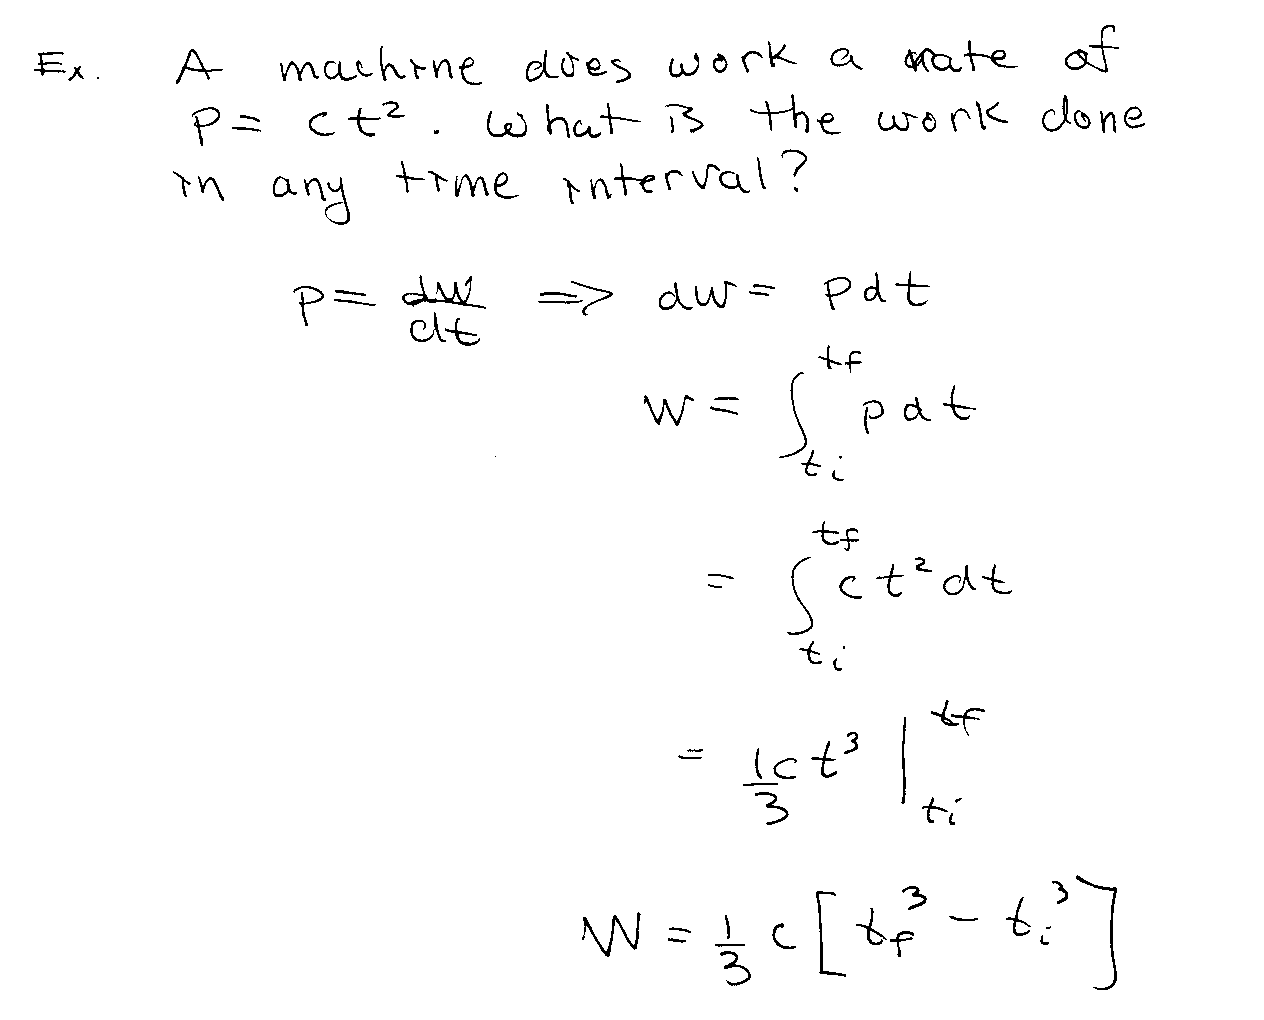 Ex. A machine does work a rate of
P = ct². What is the work done
in any time interval?
P = dw/dt => dw = Pdt
W = ∫_{ti}^{tf} P dt
= ∫_{ti}^{tf} ct² dt
= 1/3 ct³ |_{ti}^{tf}
W = 1/3 c [tf³ - ti³]